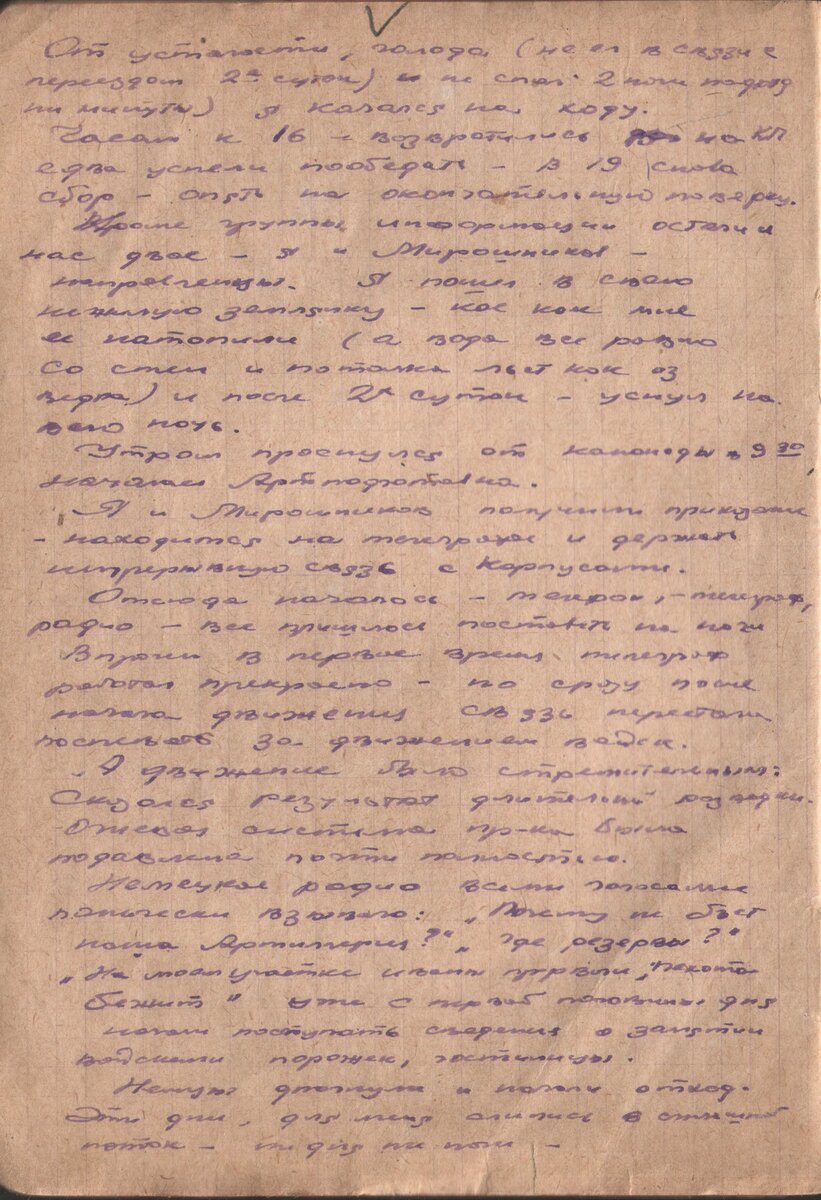 От усталости, голода (не ел в связи с
переездом 2е суток) и не спал 2 ночи подряд
ни минуты) я качался на ходу.
Часам к 16 – возвратились на КП
едва успели пообедать – в 19 снова
сбор – опять на окончательную поверку.
Кроме группы информации остались
нас двое – я и Мирошников –
направленцы. Я пошел в свою
нежилую землянку – кое как мне
ее натопили (а вода все равно
со стен и потолка льет как из
ведра) и после 2х суток – уснул на
всю ночь.
Утром проснулся от канонады в 9 30
началась Артподготовка.
Я и Мирошников получили приказание
– находится на телеграфе и держать
непрерывную связь с Корпусами.
Отсюда началось – телефон, – телеграф,
радио – все пришлось поставить на ноги
Впрочем в первое время телеграф
работал прекрасно – но сразу после
начала движения связь перестала
поспевать за движением войск.
А движение было стремительным:
Сказался результат длительной разведки.
Огневая система пр-ка была
подавлена почти полностью.
Немецкое радио всеми голосами
панически взывало: „Почему не бьет
наша Артиллерия?“ „Где резервы?“
„На моем участке иваны прорвали, „Пехота
бежит“ уже с первой половины дня
начали поступать сведения о занятии
войсками Порожек, гостилицы.
Немцы дрогнули и начали отход.
Эти дни, для меня слились в сплошной
поток – ни дня ни ночи –